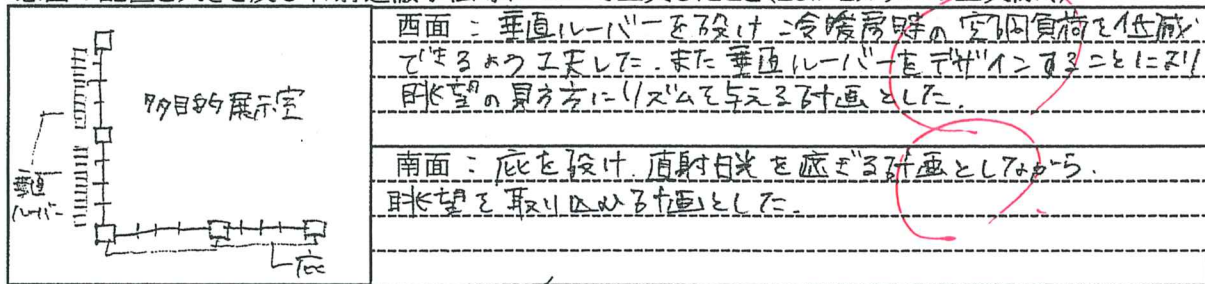 多目的展示室
垂直
ルーバー
庇
西面：垂直ルーバーを設け、冷暖房時の空調負荷を低減
できるよう工夫した。また垂直ルーバーをデザインすることにより
眺望の見方にリズムを与える計画とした。
南面：庇を設け、直射日光を遮ぎる計画としながら、
眺望を取り込める計画とした。